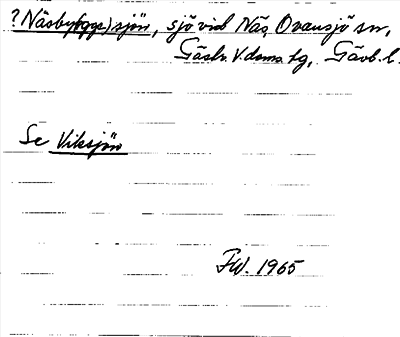 ? Näsby(ggs)sjön, sjö vid Näs Ovansjö sn,
Gästr. V. doms. tg, Gävl. l.
Se Viksjön
F.W. 1965